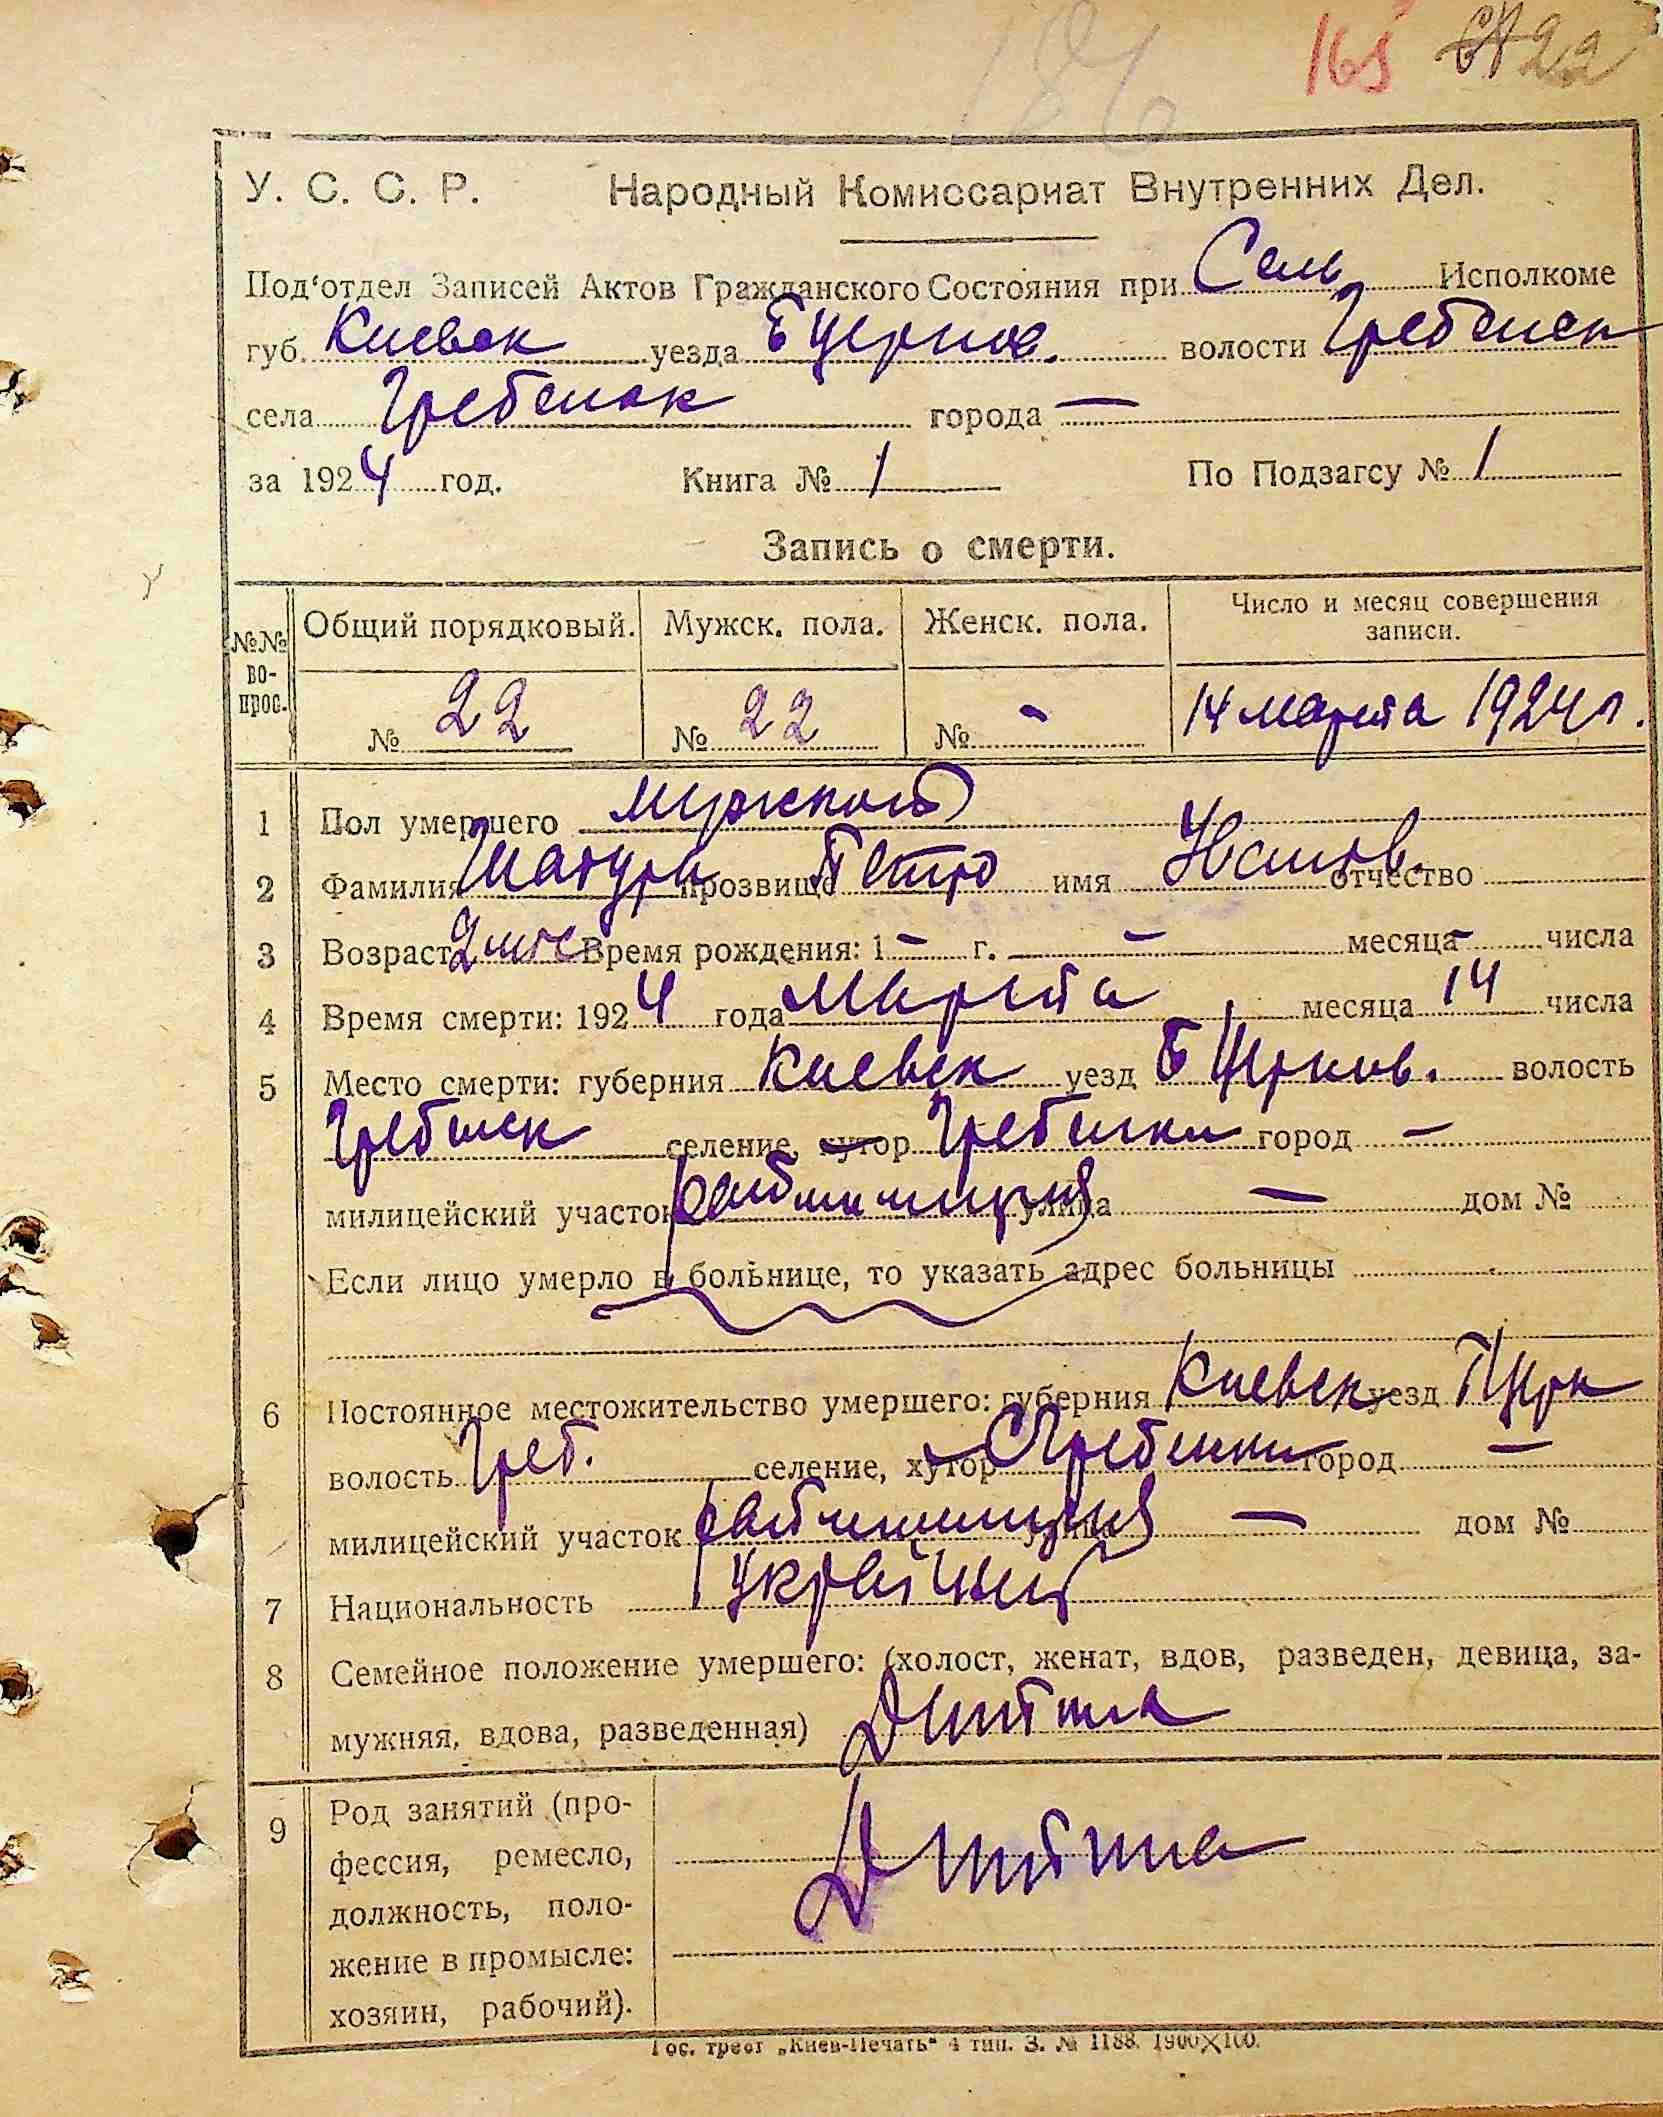 186 165 22
У. С. С. Р. Народный Комиссариат Внутренних Дел.
Под'отдел Записей Актов Гражданского Состояния при Сель Исполкоме
губ. Киевск уезда Бцерков. волости Гребенск
села Гребенок города —
за 1924 год. Книга № 1 По Подзагсу № 1
Запись о смерти.
№№ во-прос. Общий порядковый. Мужск. пола. Женск. пола. Число и месяц совершения записи.
№ 22 № 22 № - 14 марта 1924 г.
1 Пол умершего мужской
2 Фамилия прозвище Петро имя Иванов. отчество
3 Возраст 2 Время рождения: 1 — г. — месяца — числа
4 Время смерти: 1924 года марта месяца 14 числа
5 Место смерти: губерния Киевск уезд Б Церков. волость
Гребенск селение, хутор Гребенки город —
милицейский участок улица — дом №
Если лицо умерло в больнице, то указать адрес больницы
6 Постоянное местожительство умершего: губерния Киевск уезд
волость Греб. селение, хутор С Гребенки город —
милицейский участок улица — дом №
7 Национальность
8 Семейное положение умершего: (холост, женат, вдов, разведен, девица, за-
мужняя, вдова, разведенная) Дитина
9 Род занятий (про-
фессия, ремесло, Дитина
должность, поло-
жение в промысле:
хозяин, рабочий).
Гос. трест „Киев-Печать" 4 тип. З. № 1188. 1900×100.